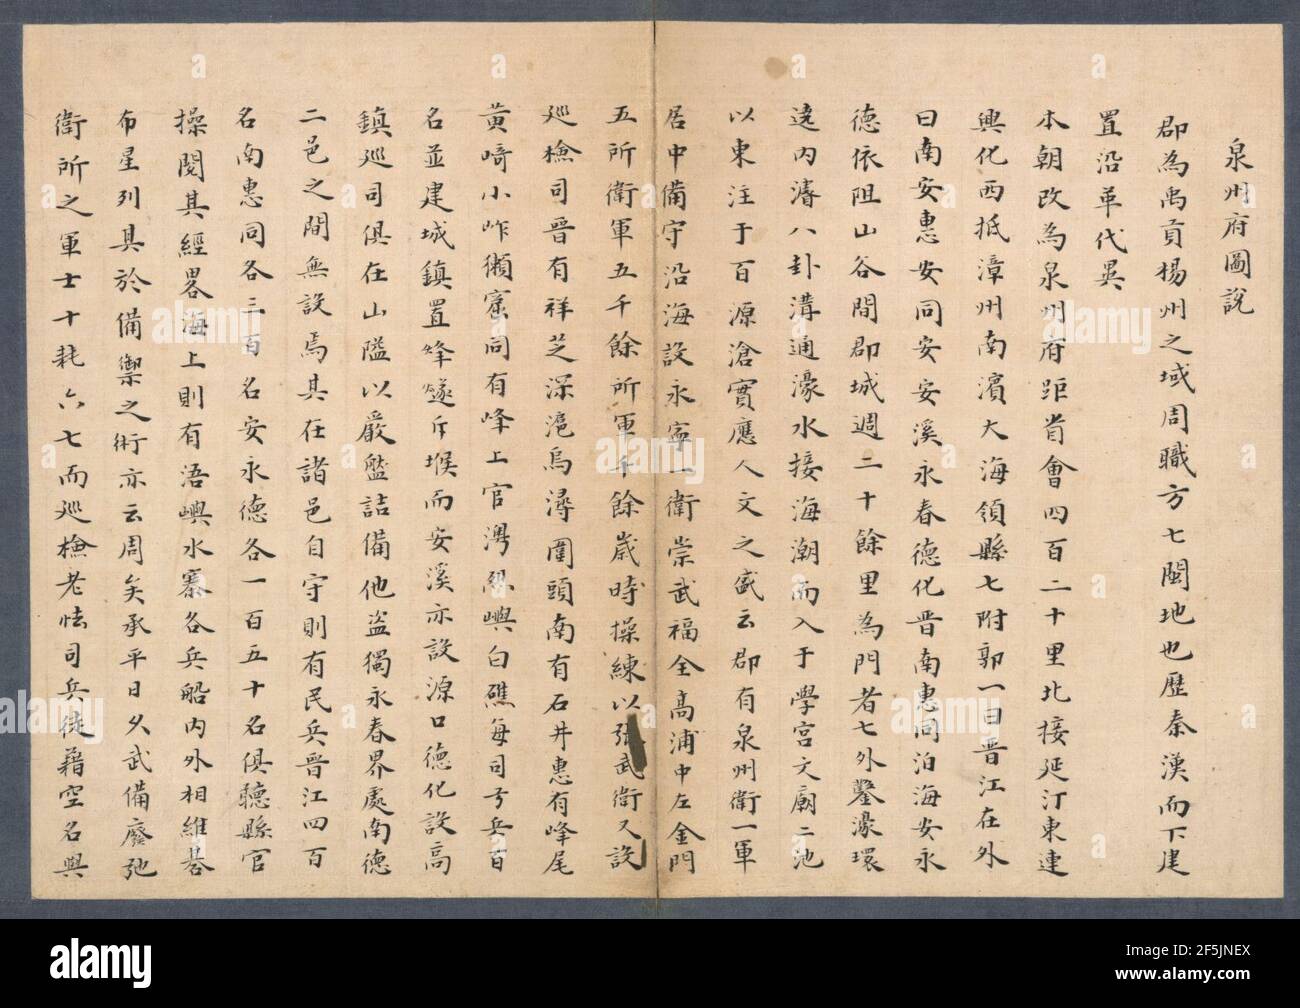 泉州府圖說
郡為禹貢揚州之域周職方七閩地也歷秦漢而下建
置沿革代異
本朝改為泉州府距省會四百二十里北接延汀東連
興化西抵漳州南濱大海領縣七附郭一曰晉江在外
曰南安惠安同安安溪永春德化晉南惠同泊海安永
德依阻山谷間郡城週二十餘里為門者七外鑿濠環
遶內濬八卦溝通濠水接海潮而入于學宮文廟二池
以東注于百源滄實應人文之盛云郡有泉州衛一軍
居中備守沿海設永寧一衛崇武福全高浦中左金門
五所衛軍五千餘所軍千餘歲時操練以張武衛又設
巡檢司晉有祥芝深滬烏潯圍頭南有石井惠有峰尾
黃崎小岞獺窟同有峰上官澳烈嶼白礁每司弓兵百
名並建城鎮置烽燧斥堠而安溪亦設源口德化設高
鎮巡司俱在山隘以嚴盤詰備他盜獨永春界處南德
二邑之間無設焉其在諸邑自守則有民兵晉江四百
名南惠同各三百名安永德各一百五十名俱聽縣官
操閱其經畧海上則有浯嶼水寨各兵船內外相維碁
布星列其於備禦之術亦云周矣承平日久武備廢弛
衛所之軍士十耗六七而巡檢老怯司兵徒藉空名與
alamy
Image ID: 2F5JNEX
www.alamy.com